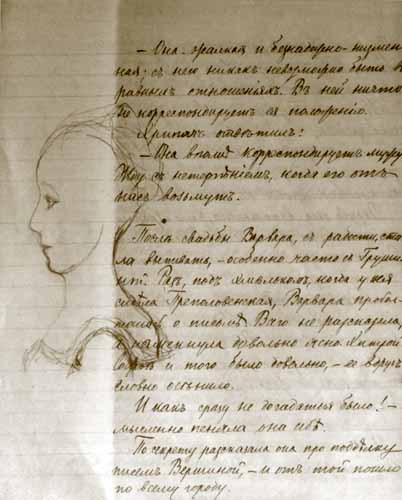 — Она яркая и безнадежно-шумен
ная; съ нею никакъ невозможно быть в
равныхъ отношеніяхъ. Въ ней ничто
не корреспондируетъ ея положенію.
Хрипачъ отвѣтилъ:
— Она вполнѣ корреспондируетъ мужу
Жду съ нетерпѣніемъ, когда его отъ
насъ возьмутъ.
Послѣ свадьбы Варвара, съ радости, ста
ла выпивать, — особенно часто съ Груши
ной. Разъ, подъ хмѣлькомъ, когда у нея
сидѣла Преполовенская, Варвара пробол
талась о письмѣ. Всего не разсказала,
а намекнула довольно ясно. Хитрой
Софьѣ и того было довольно, — ее вдругъ
словно осѣнило.
И какъ сразу не догадаться было! —
мысленно пеняла она себѣ.
По секрету разсказала она про поддѣлку
писемъ Вершиной, — и отъ той пошло
по всему городу.